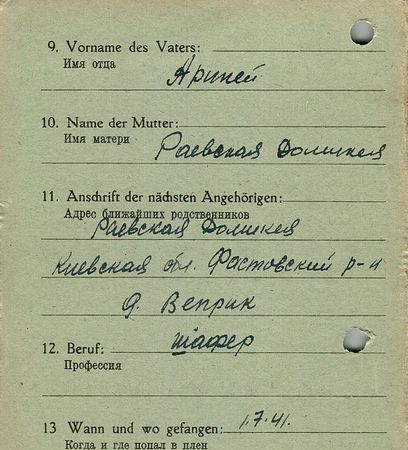 9. Vorname des Vaters:
Имя отца
Ариней
10. Name der Mutter:
Имя матери
Раевская Доликея
11. Anschrift der nächsten Angehörigen:
Адрес ближайших родственников
Раевская Доликея
Киевская обл. Фастовский р-н
д. Веприк
12. Beruf:
шофер
Профессия
13 Wann und wo gefangen: 1.7.41.
Когда и где попал в плен